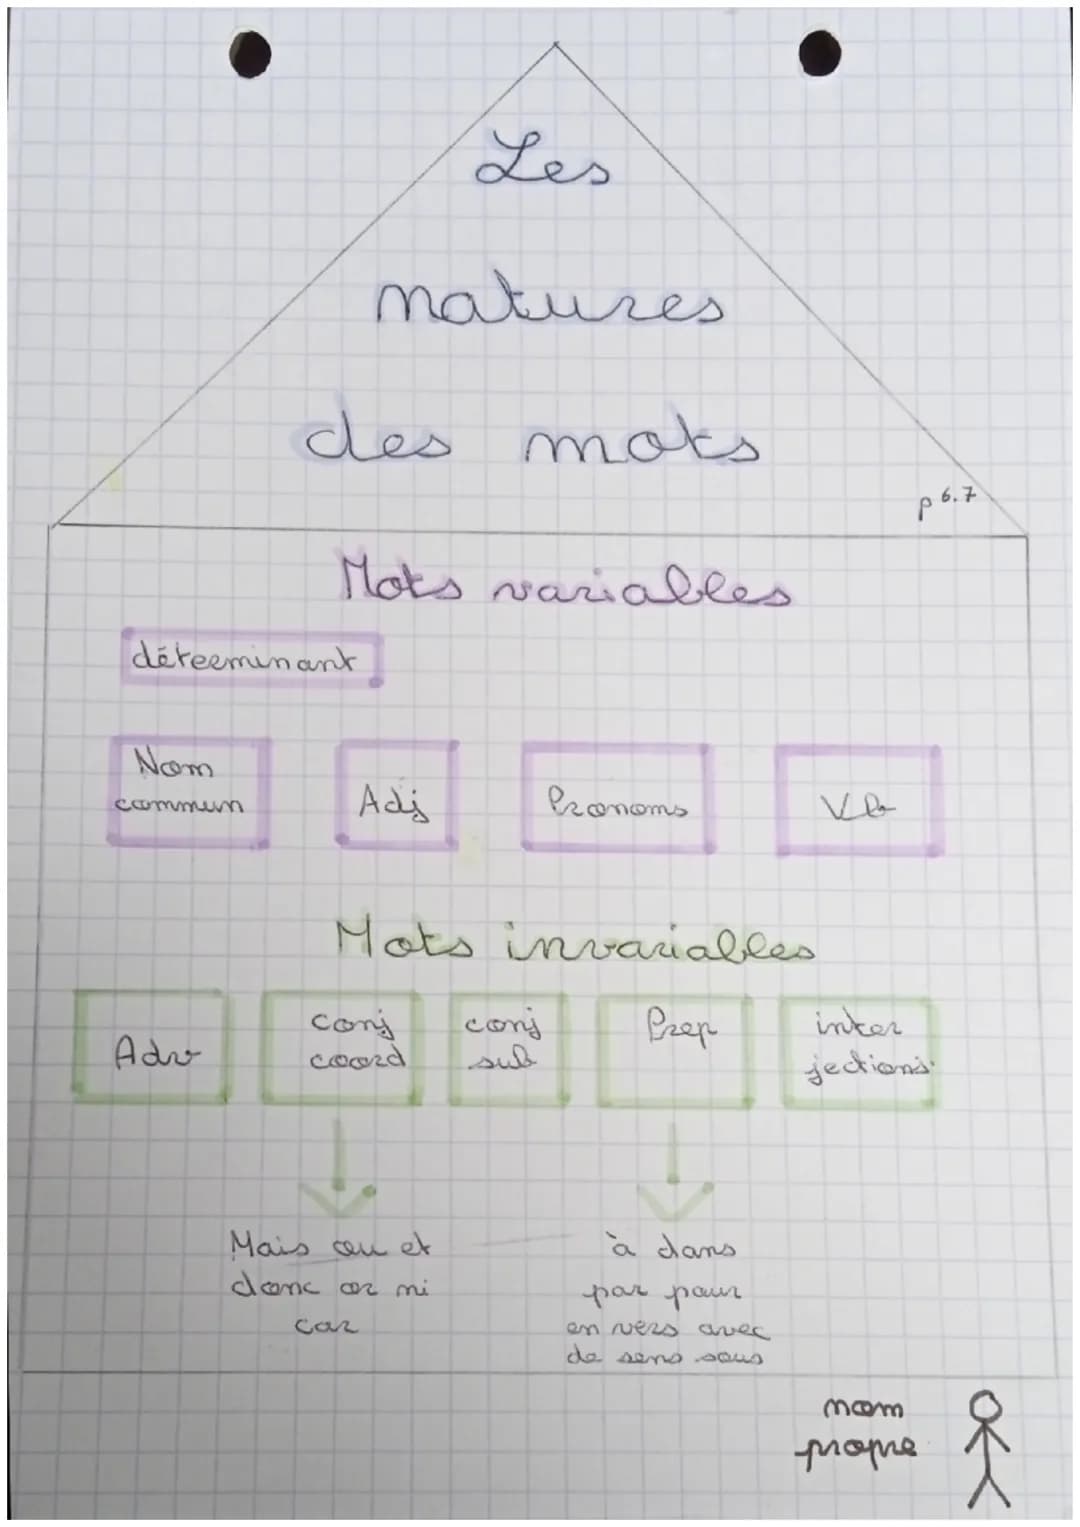 Les
natures
des mots
p 6.7
Mots variables
déterminant
Nom
commun
Adj
Pronoms
Vb
Mots invariables
Adv
conj
coord
conj
sub
Prep
inter
jections
Mais ou et
donc or ni
car
à dans
par pour
en vers avec
de sens sous
nom
propre